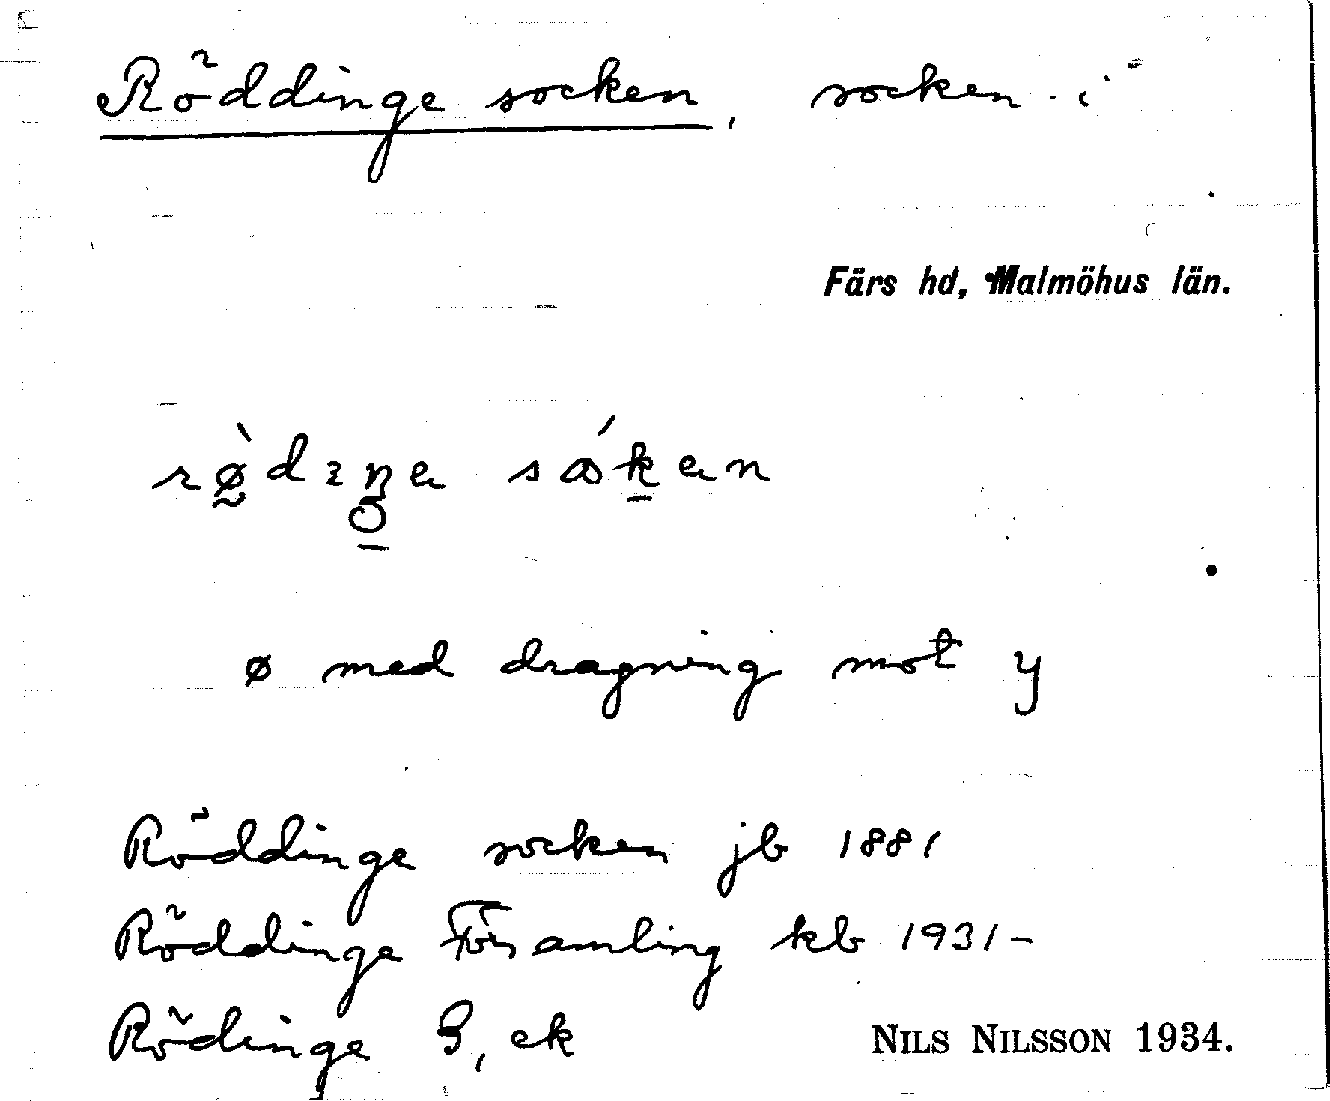 Röddinge socken, socken i
Färs hd, Malmöhus län.
rø̀dıŋe såken
ø med dragning mot y
Röddinge socken jb 1881
Röddinge Församling kb 1931–
Rödinge G, ek
NILS NILSSON 1934.